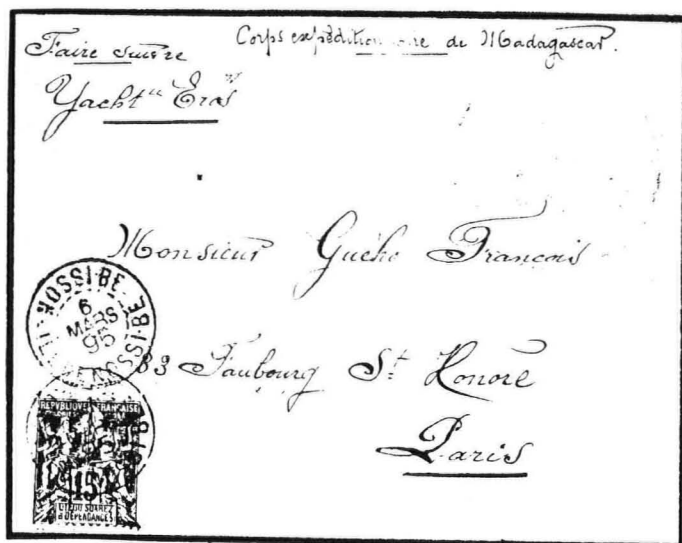 Corps expéditionnaire de Madagascar.
Faire suivre
Yacht "Eros"
Monsieur Guého François
83 Faubourg St Honoré
Paris
NOSSI-BE
6
MARS
95
NOSSI-BE
REPUBLIQUE FRANCAISE
15
DIEGO SUAREZ
& DEPENDANCES